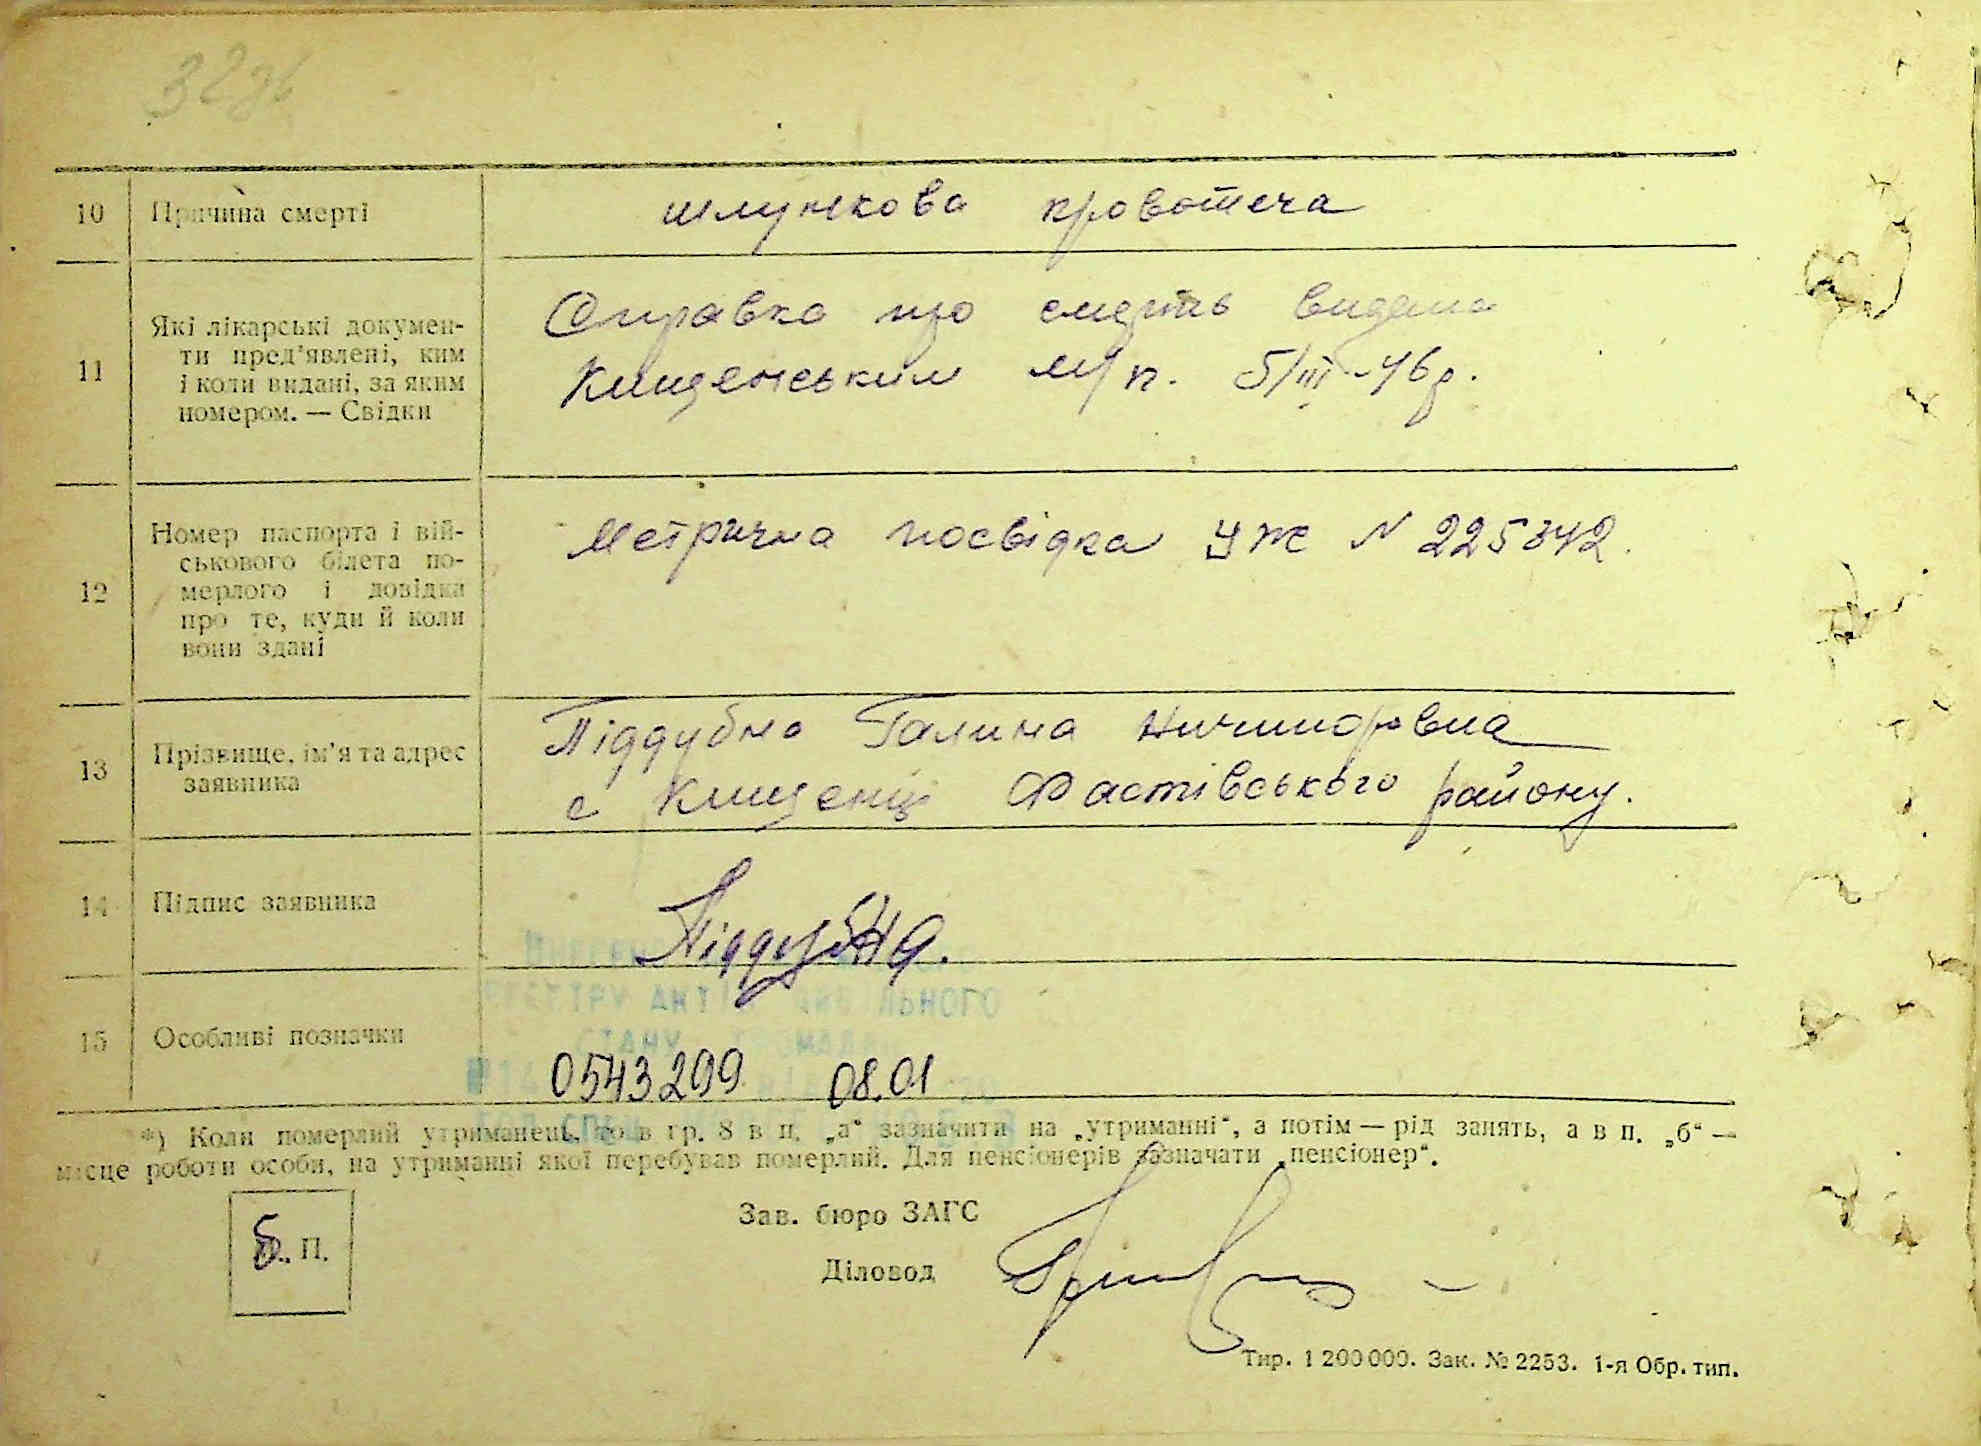 10 Причина смерті шлункова кровотеча
11 Які лікарські докумен-
ти пред'явлені, ким
і коли видані, за яким
номером. — Свідки
Справка про смерть видана
Кищенським м/п. 5/III-46р.
12 Номер паспорта і вій-
ськового білета по-
мерлого і довідка
про те, куди й коли
вони здані
Метрична посвідка УЖ N 225842.
13 Прізвище, ім'я та адрес
заявника
Піддубна Галина Ничипорівна
с Кищенці Фастівського району.
14 Підпис заявника Піддубна.
15 Особливі позначки
РЕЄСТРУ АКТІВ ЦИВІЛЬНОГО
СТАНУ ГРОМАДЯН
0543299 08.01
*) Коли померлий утриманець, то в гр. 8 в п. „а“ зазначити на „утриманні“, а потім — рід занять, а в п. „б“ —
місце роботи особи, на утриманні якої перебував померлий. Для пенсіонерів зазначати „пенсіонер“.
Зав. бюро ЗАГС
П.
Діловод
Тир. 1 200 000. Зак. № 2253. 1-я Обр. тип.